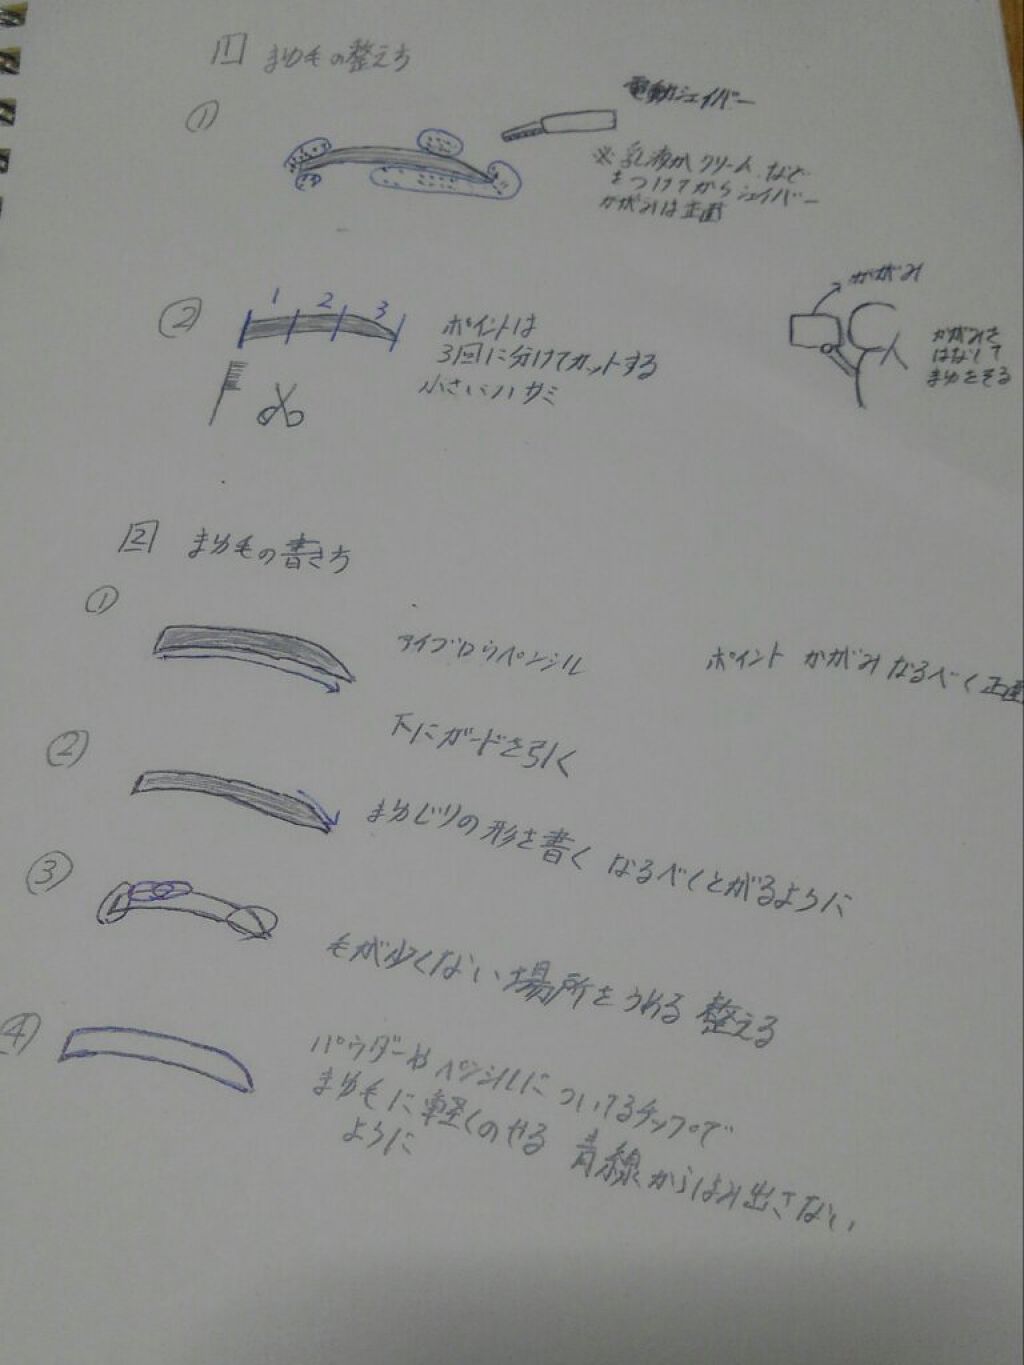 1 まゆ毛の整え方
①
電動シェイバー
※乳液かクリームなど
をつけてからシェイバー
かがみは正面
②
1 2 3
ポイントは
3回に分けてカットする
小さいハサミ
かがみ
かがみを
はなして
まゆをそる
2 まゆ毛の書き方
①
アイブロウペンシル
ポイント かがみ なるべく正面
下にガードを引く
②
まゆじりの形を書く なるべくとがるように
③
毛が少くない場所をうめる 整える
④
パウダーやペンシルについてるチップで
まゆ毛に軽くのせる 青線からはみ出さない
ように